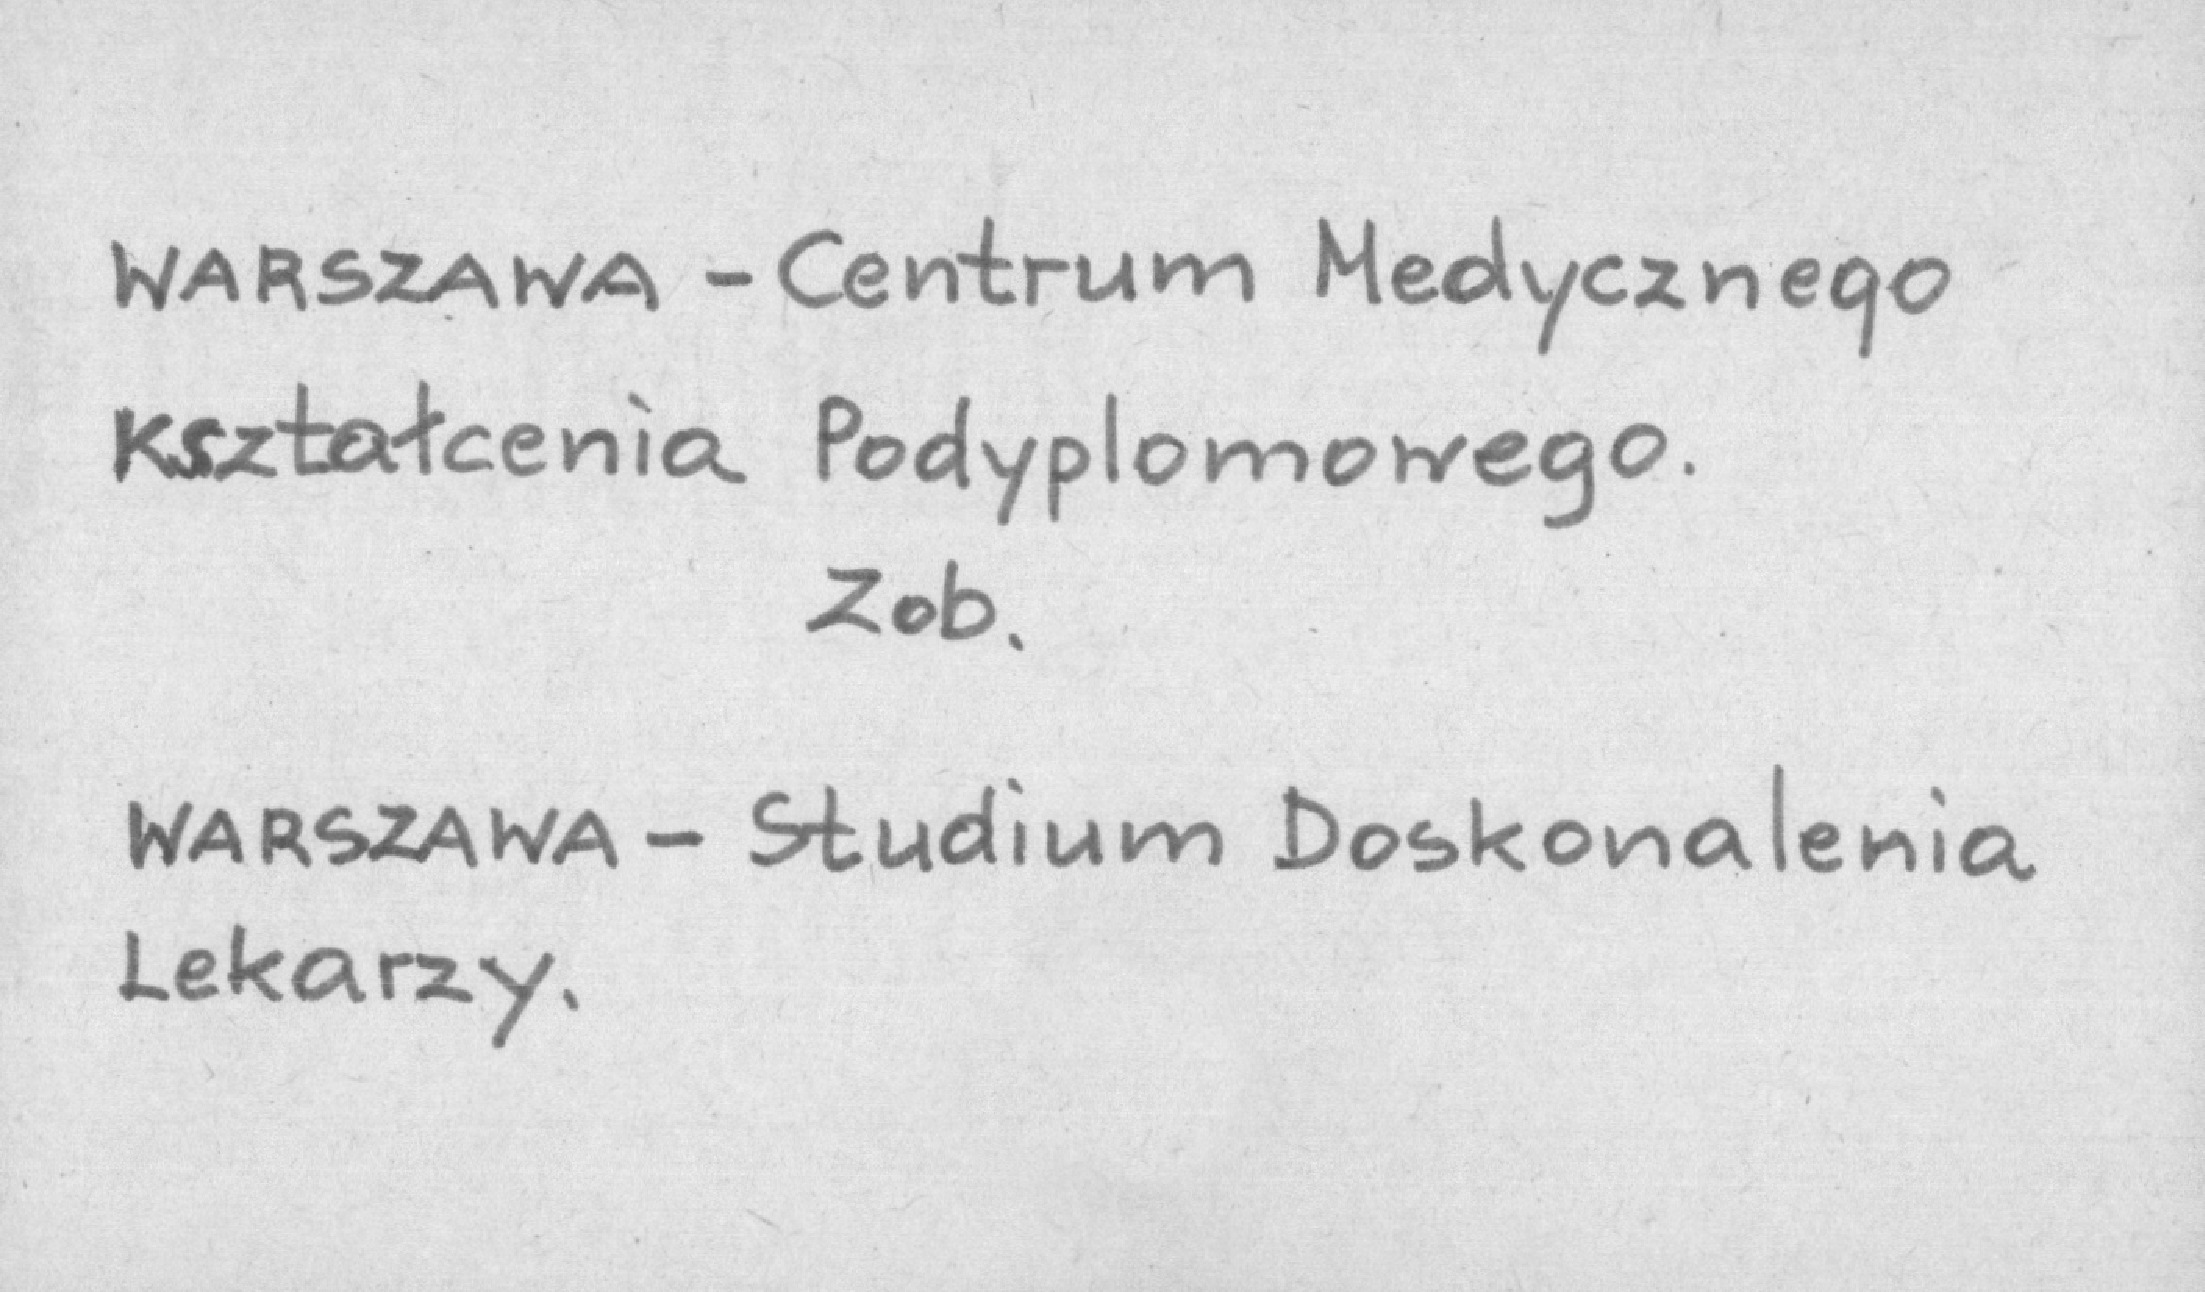 WARSZAWA - Centrum Medycznego
Kształcenia Podyplomowego.
Zob.
WARSZAWA - Studium Doskonalenia
Lekarzy.